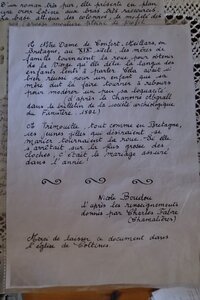 d'un roman très pur, elle présente un plan
une croix latine aux bras très
La base attique des colonnes, le modelé des
A Notre Dame de Confort-Meilars, en
Bretagne, au XIXe siècle les mères de
famille tournaient la roue pour obtenir
de la Vierge qu'elle délie la langue des
enfants lents à parler. Cela avait si
bien réussi avec un enfant que sa
mère dut la faire tourner à rebours
pour modérer un peu sa loquacité !
d'après le Chanoine Abgrall
dans le bulletin de la société archéologique
du Finistère, 1892)
A Trémouille, tout comme en Bretagne,
les jeunes filles qui désiraient se
marier tournaient la roue. Si elle
s'arrêtait sur la plus grosse des
cloches, c'était le mariage assuré
dans l'année.
Nicole Boudou
d'après les renseignements
donnés par Charles Fabre
(Chamalières)
Merci de laisser ce document dans
l'église de Coltines.